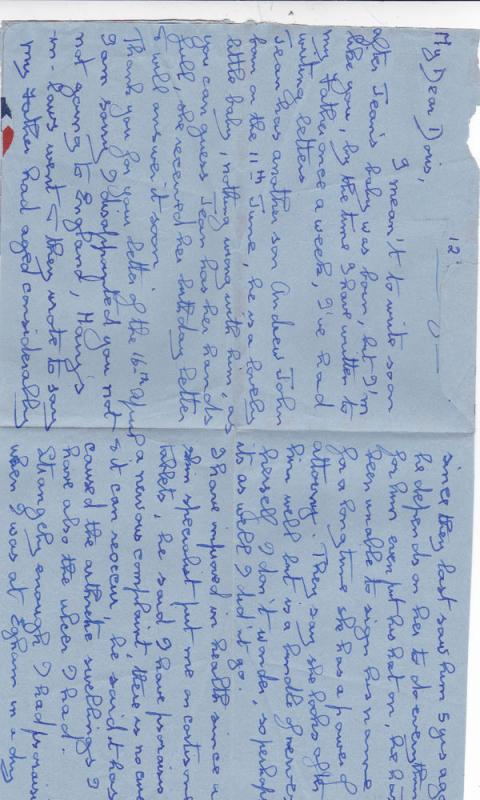 12
My Dear Doris,
I mean't to write soon
after Jean's baby was born, but I'm
like you, by the time I have written to
my Father once a week, I've had
writing letters
Jean has another son Andrew John
born on the 11th June, he is a lovely
little baby, nothing wrong with him, as
you can guess Jean has her hands
full, she received her birthday letter
& will answer it soon
Thank you for your letter of the 16th April
I am sorry I disappointed you not
not going to England, Harry's
in-laws went & they wrote to say
my Father had aged considerably
since they last saw him 5 yrs ago
he depends on her to do everything
for him even put his hat on, he has
been unable to sign his name
for a long time she has a power of
attorny. They say she looks after
him well but is a bundle of nerves
herself I don't wonder, so perhaps
it as well I did it go.
I have improved in health since a
skin specialist put me on cortisone
tablets, he said I have psoriasis
a nervous complaint, there is no cure
& it can reoccur, he said it has
caused the arthritic swellings I
have also the ulcer I had.
Strangely enough I had psoriasis
when I was at Egham in a dry